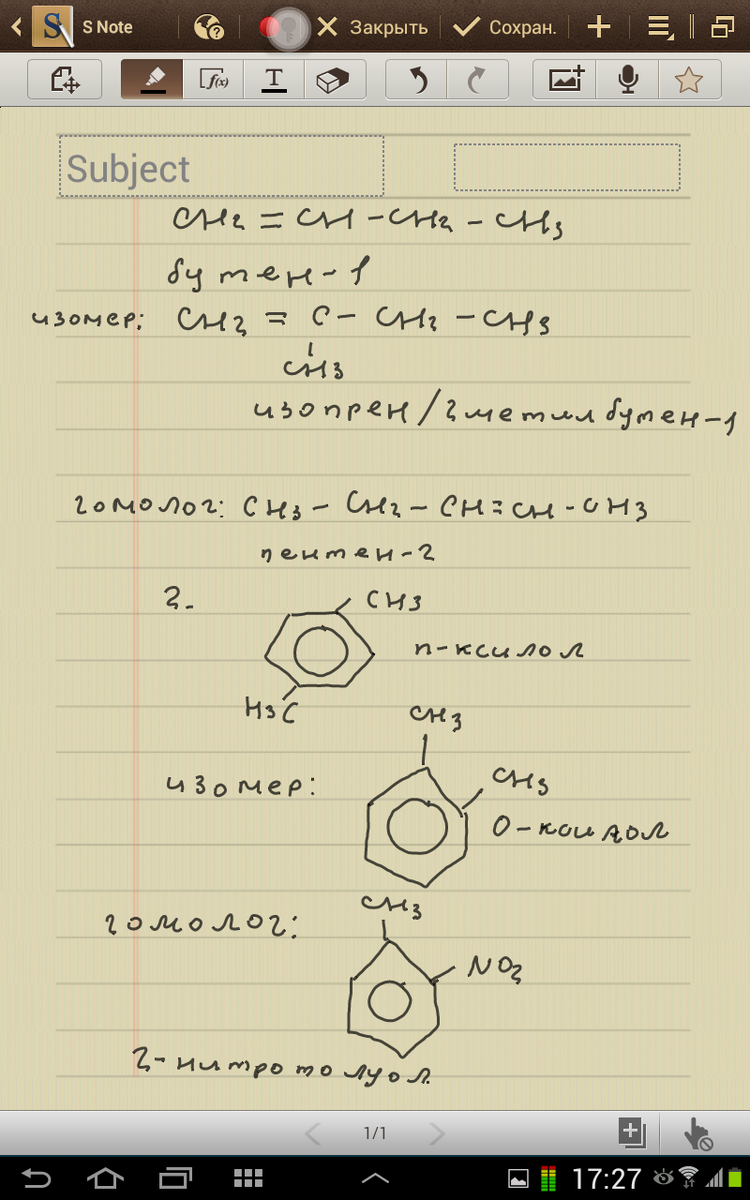 S Note
Закрыть
Сохран.
f(x)
T
Subject
CH2 = CH - CH2 - CH3
бутен-1
изомер: CH2 = C - CH2 - CH3
CH3
изопрен/2метилбутен-1
гомолог: CH3 - CH2 - CH = CH - CH3
пентен-2
2.
CH3
п-ксилол
H3C
CH3
изомер:
CH3
О-ксилол
CH3
гомолог:
NO2
2-нитротолуол
1/1
17:27